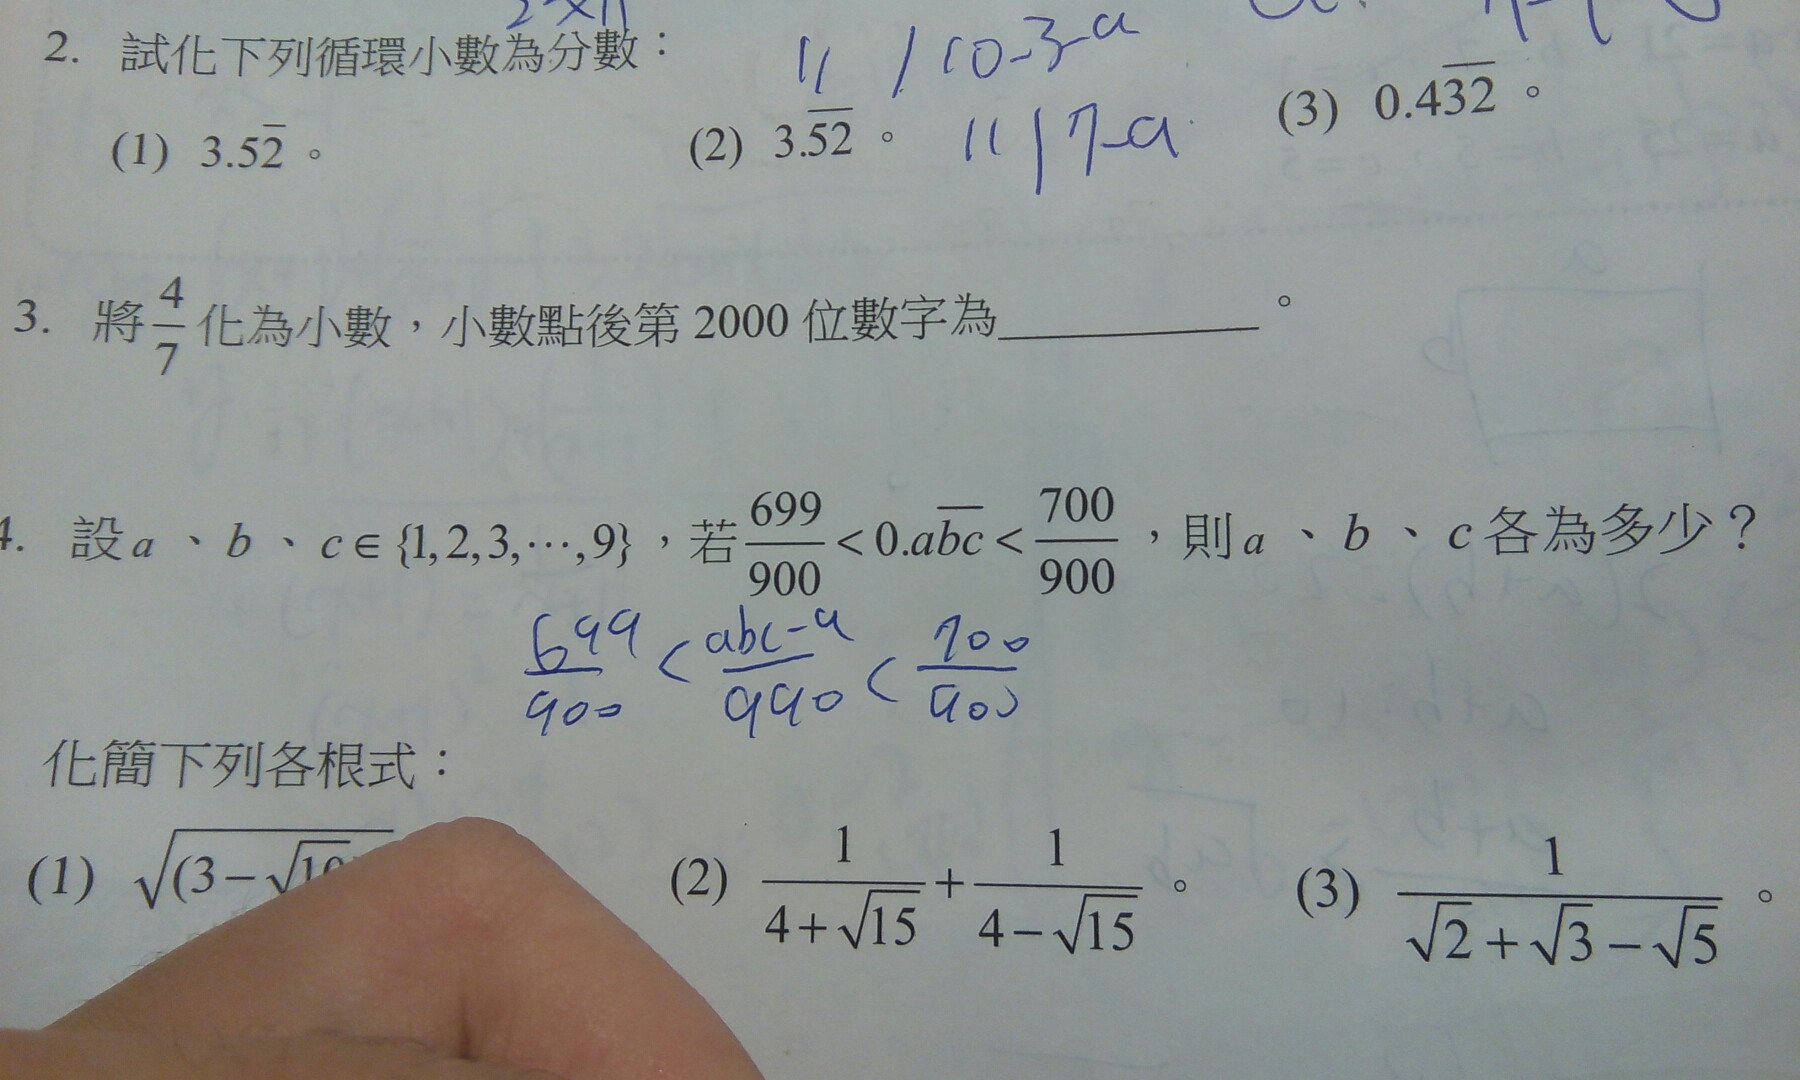 2. 試化下列循環小數為分數：
11 / 10-3-a
(1) 3.52̅。 (2) 3.5̅2̅。 (3) 0.43̅2̅。
11 | 7-a
3. 將 4/7 化為小數，小數點後第 2000 位數字為__________。
4. 設 a、b、c∈{1,2,3,⋯,9}，若 699/900 < 0.ab̅c̅ < 700/900，則 a、b、c 各為多少？
699/900 < abc-a/990 < 700/900
化簡下列各根式：
(1) √(3-√10 (2) 1/(4+√15) + 1/(4-√15)。 (3) 1/(√2+√3-√5)。